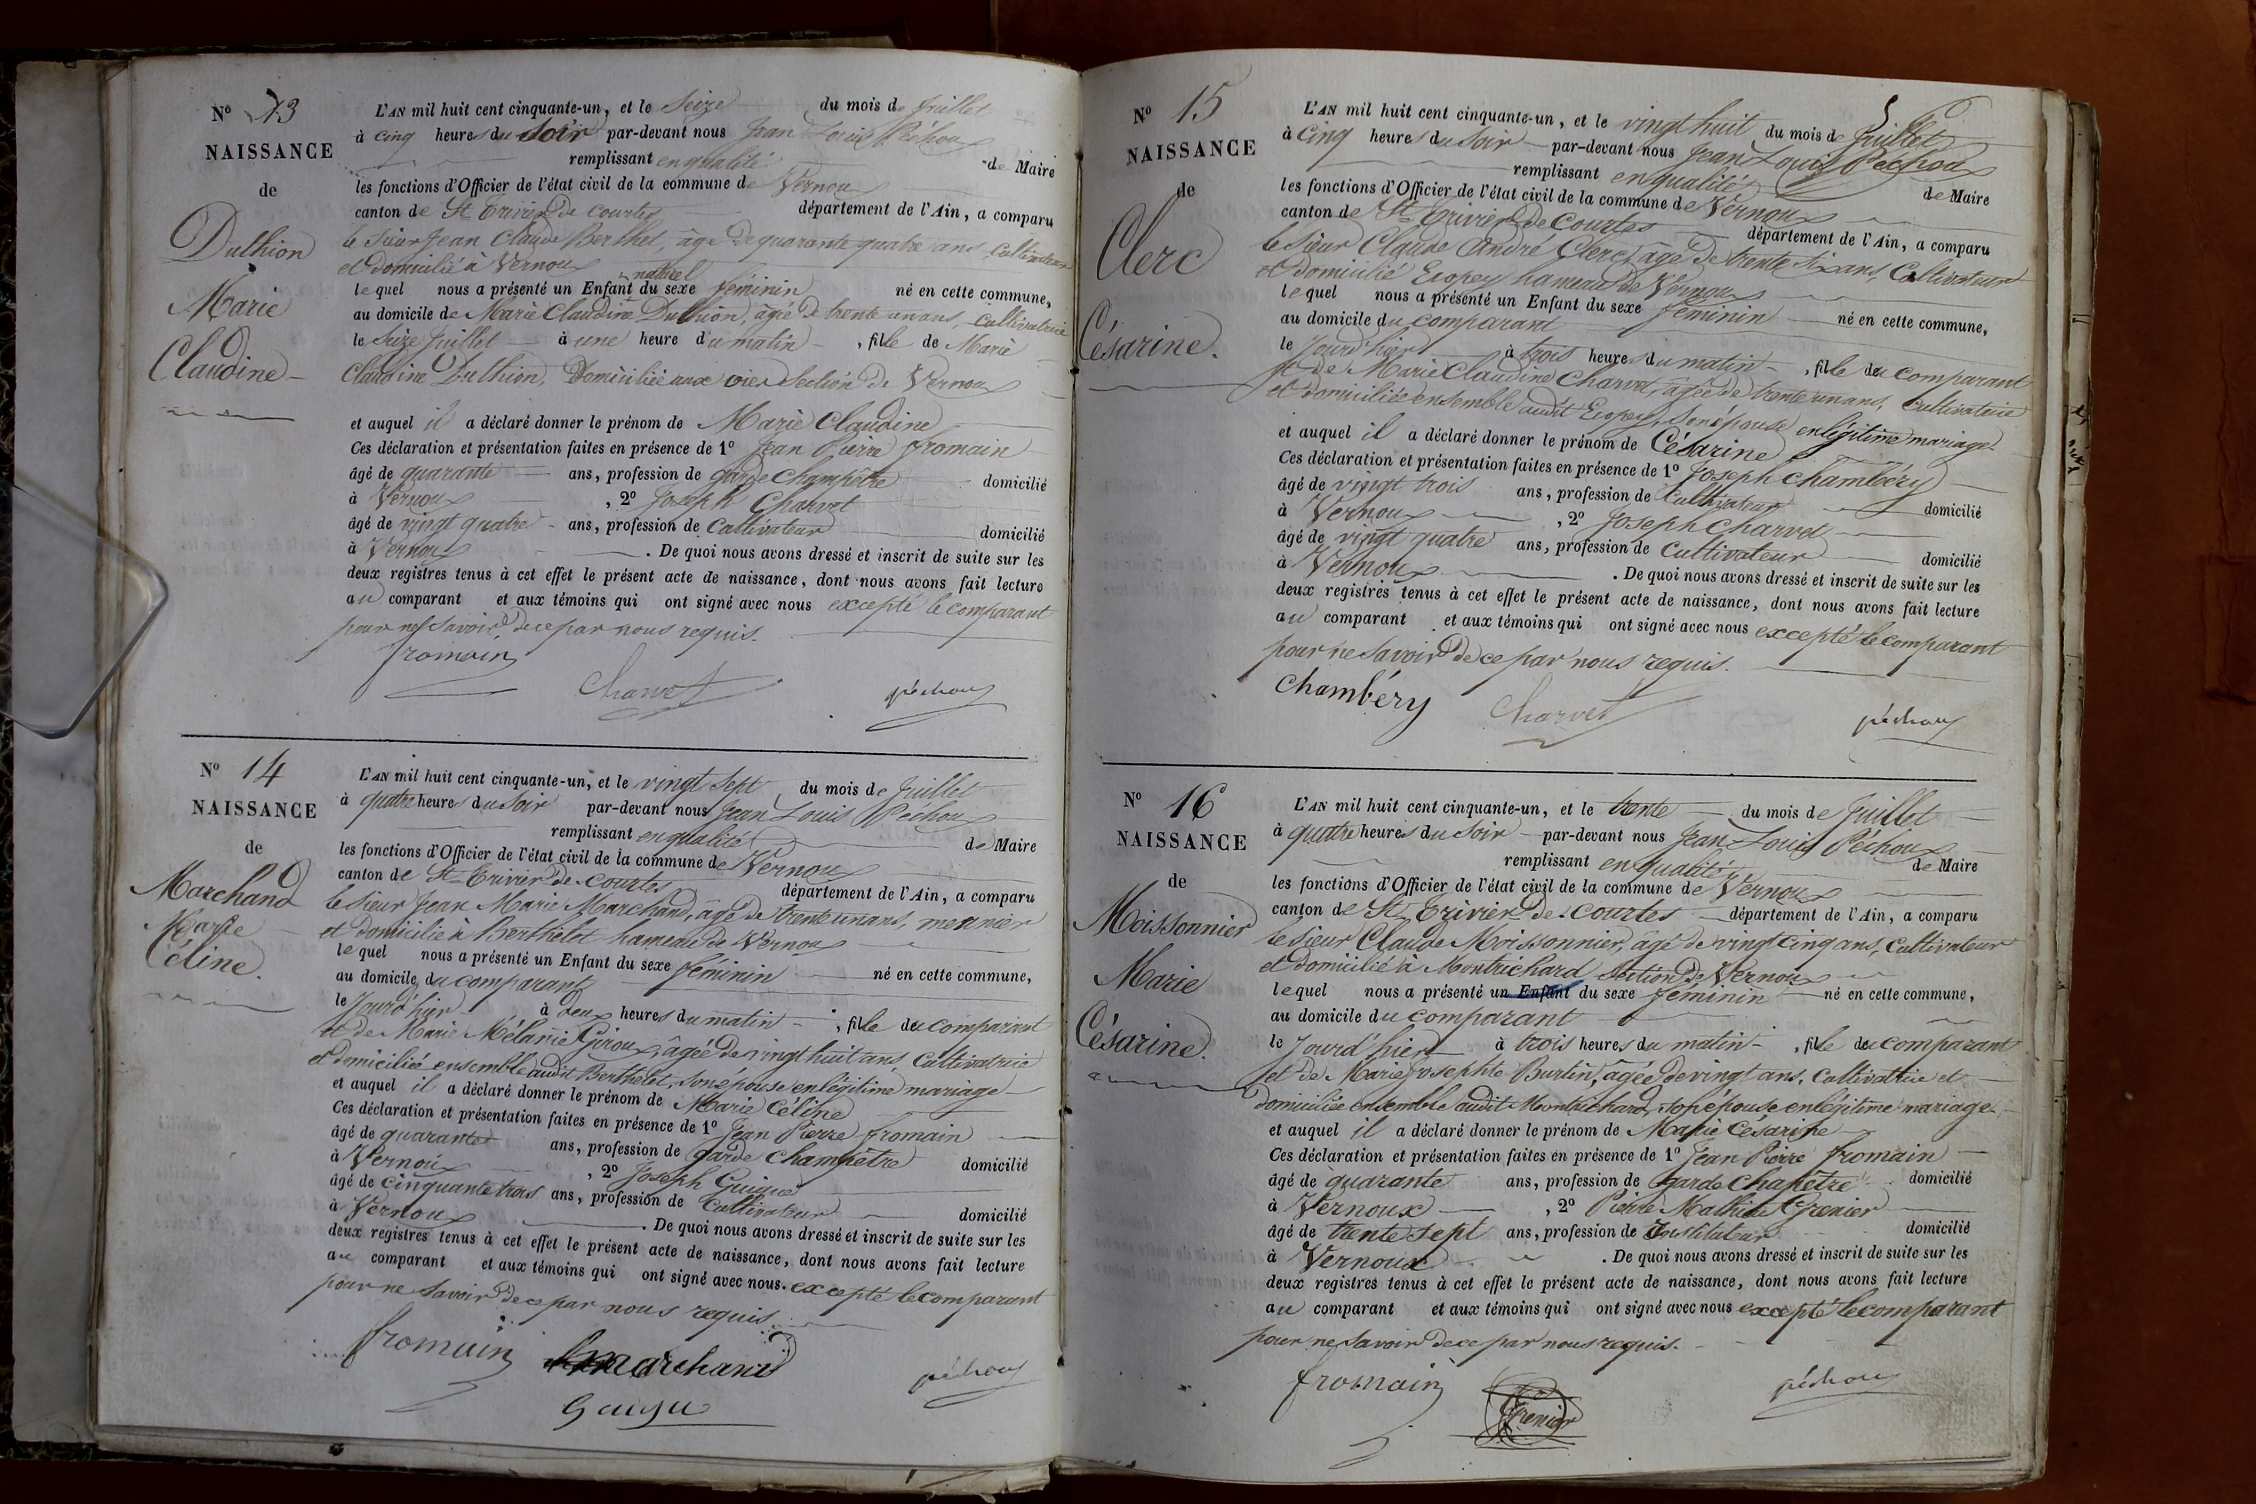 N° 13
NAISSANCE
de
Dulhion
Marie
Claudine
L'AN mil huit cent cinquante-un, et le Seize du mois de Juillet
à cinq heures du soir par-devant nous Jean Louis Péchoux
remplissant en qualité de Maire
les fonctions d'Officier de l'état civil de la commune de Vernoux
canton de St Trivier de Courtes département de l'Ain, a comparu
le Sieur Jean Claude Berthet, âgé de quarante quatre ans, Cultivateur
et domicilié à Vernoux
naturel
lequel nous a présenté un Enfant du sexe féminin né en cette commune,
au domicile de Marie Claudine Dulhion, âgée de trente un ans, cultivatrice
le Seize Juillet à une heure du matin, fille de Marie
Claudine Dulhion, Domiciliée aux Section de Vernoux
et auquel il a déclaré donner le prénom de Marie Claudine
Ces déclaration et présentation faites en présence de 1° Jean Pierre fromain
âgé de quarante ans, profession de garde Champêtre domicilié
à Vernoux, 2° Joseph Charvet
âgé de vingt quatre ans, profession de Cultivateur domicilié
à Vernoux. De quoi nous avons dressé et inscrit de suite sur les
deux registres tenus à cet effet le présent acte de naissance, dont nous avons fait lecture
au comparant et aux témoins qui ont signé avec nous excepté le comparant
pour ne savoir, de ce par nous requis.
fromain Charvet péchoux
N° 14
NAISSANCE
de
Marchand
Marie
Céline.
L'AN mil huit cent cinquante-un, et le vingt sept du mois de Juillet
à quatre heures du Soir par-devant nous Jean Louis Péchoux
remplissant en qualité de Maire
les fonctions d'Officier de l'état civil de la commune de Vernoux
canton de St Trivier de Courtes département de l'Ain, a comparu
le Sieur Jean Marie Marchand, âgé de trente un ans, meunier
et domicilié à Berthelet hameau de Vernoux
lequel nous a présenté un Enfant du sexe féminin né en cette commune,
au domicile du comparant
le Jourd'hier à deux heures du matin, fille du comparant
et de Marie Mélanie Giroux, âgée de vingt huit ans, Cultivatrice
et domiciliée ensemble audit Berthelet, son épouse en légitime mariage
et auquel il a déclaré donner le prénom de Marie Céline
Ces déclaration et présentation faites en présence de 1° Jean Pierre fromain
âgé de quarante ans, profession de garde Champêtre domicilié
à Vernoux, 2° Joseph Guigue
âgé de cinquante trois ans, profession de Cultivateur domicilié
à Vernoux. De quoi nous avons dressé et inscrit de suite sur les
deux registres tenus à cet effet le présent acte de naissance, dont nous avons fait lecture
au comparant et aux témoins qui ont signé avec nous. excepté le comparant
pour ne savoir de ce par nous requis.
fromain marchand péchoux
Guigue
N° 15
NAISSANCE
de
Clerc
Césarine.
L'AN mil huit cent cinquante-un, et le vingt huit du mois de Juillet
à cinq heures du Soir par-devant nous Jean Louis Péchoux
remplissant en qualité de Maire
les fonctions d'Officier de l'état civil de la commune de Vernoux
canton de St Trivier de Courtes département de l'Ain, a comparu
le Sieur Claude André Clerc, âgé de trente six ans, Cultivateur
et domicilié Ecopey hameau de Vernoux
lequel nous a présenté un Enfant du sexe féminin né en cette commune,
au domicile du comparant
le Jourd'hier à trois heures du matin, fille du comparant
et de Marie Claudine Charvet, âgée de trente un ans, Cultivatrice
et domiciliée ensemble audit Ecopey, son épouse en légitime mariage.
et auquel il a déclaré donner le prénom de Césarine
Ces déclaration et présentation faites en présence de 1° Joseph Chambéry
âgé de vingt trois ans, profession de Cultivateur domicilié
à Vernoux, 2° Joseph Charvet
âgé de vingt quatre ans, profession de Cultivateur domicilié
à Vernoux. De quoi nous avons dressé et inscrit de suite sur les
deux registres tenus à cet effet le présent acte de naissance, dont nous avons fait lecture
au comparant et aux témoins qui ont signé avec nous excepté le comparant
pour ne savoir de ce par nous requis.
Chambéry Charvet péchoux
N° 16
NAISSANCE
de
Moissonnier
Marie
Césarine.
L'AN mil huit cent cinquante-un, et le trente du mois de Juillet
à quatre heures du Soir par-devant nous Jean Louis Péchoux
remplissant en qualité de Maire
les fonctions d'Officier de l'état civil de la commune de Vernoux
canton de St Trivier de Courtes département de l'Ain, a comparu
le Sieur Claude Moissonnier, âgé de vingt cinq ans, Cultivateur
et domicilié à Montrichard section de Vernoux
lequel nous a présenté un Enfant du sexe féminin né en cette commune,
au domicile du comparant
le Jourd'hier à trois heures du matin, fille du comparant
et de Marie Josephte Burtin, âgée de vingt ans, Cultivatrice et
domiciliée ensemble audit Montrichard, son épouse en légitime mariage.
et auquel il a déclaré donner le prénom de Marie Césarine
Ces déclaration et présentation faites en présence de 1° Jean Pierre fromain
âgé de quarante ans, profession de garde Chapêtre domicilié
à Vernoux, 2° Pierre Mathieu Grenier
âgé de trente sept ans, profession de Instituteur domicilié
à Vernoux. De quoi nous avons dressé et inscrit de suite sur les
deux registres tenus à cet effet le présent acte de naissance, dont nous avons fait lecture
au comparant et aux témoins qui ont signé avec nous excepté le comparant
pour ne savoir de ce par nous requis.
fromain Grenier péchoux